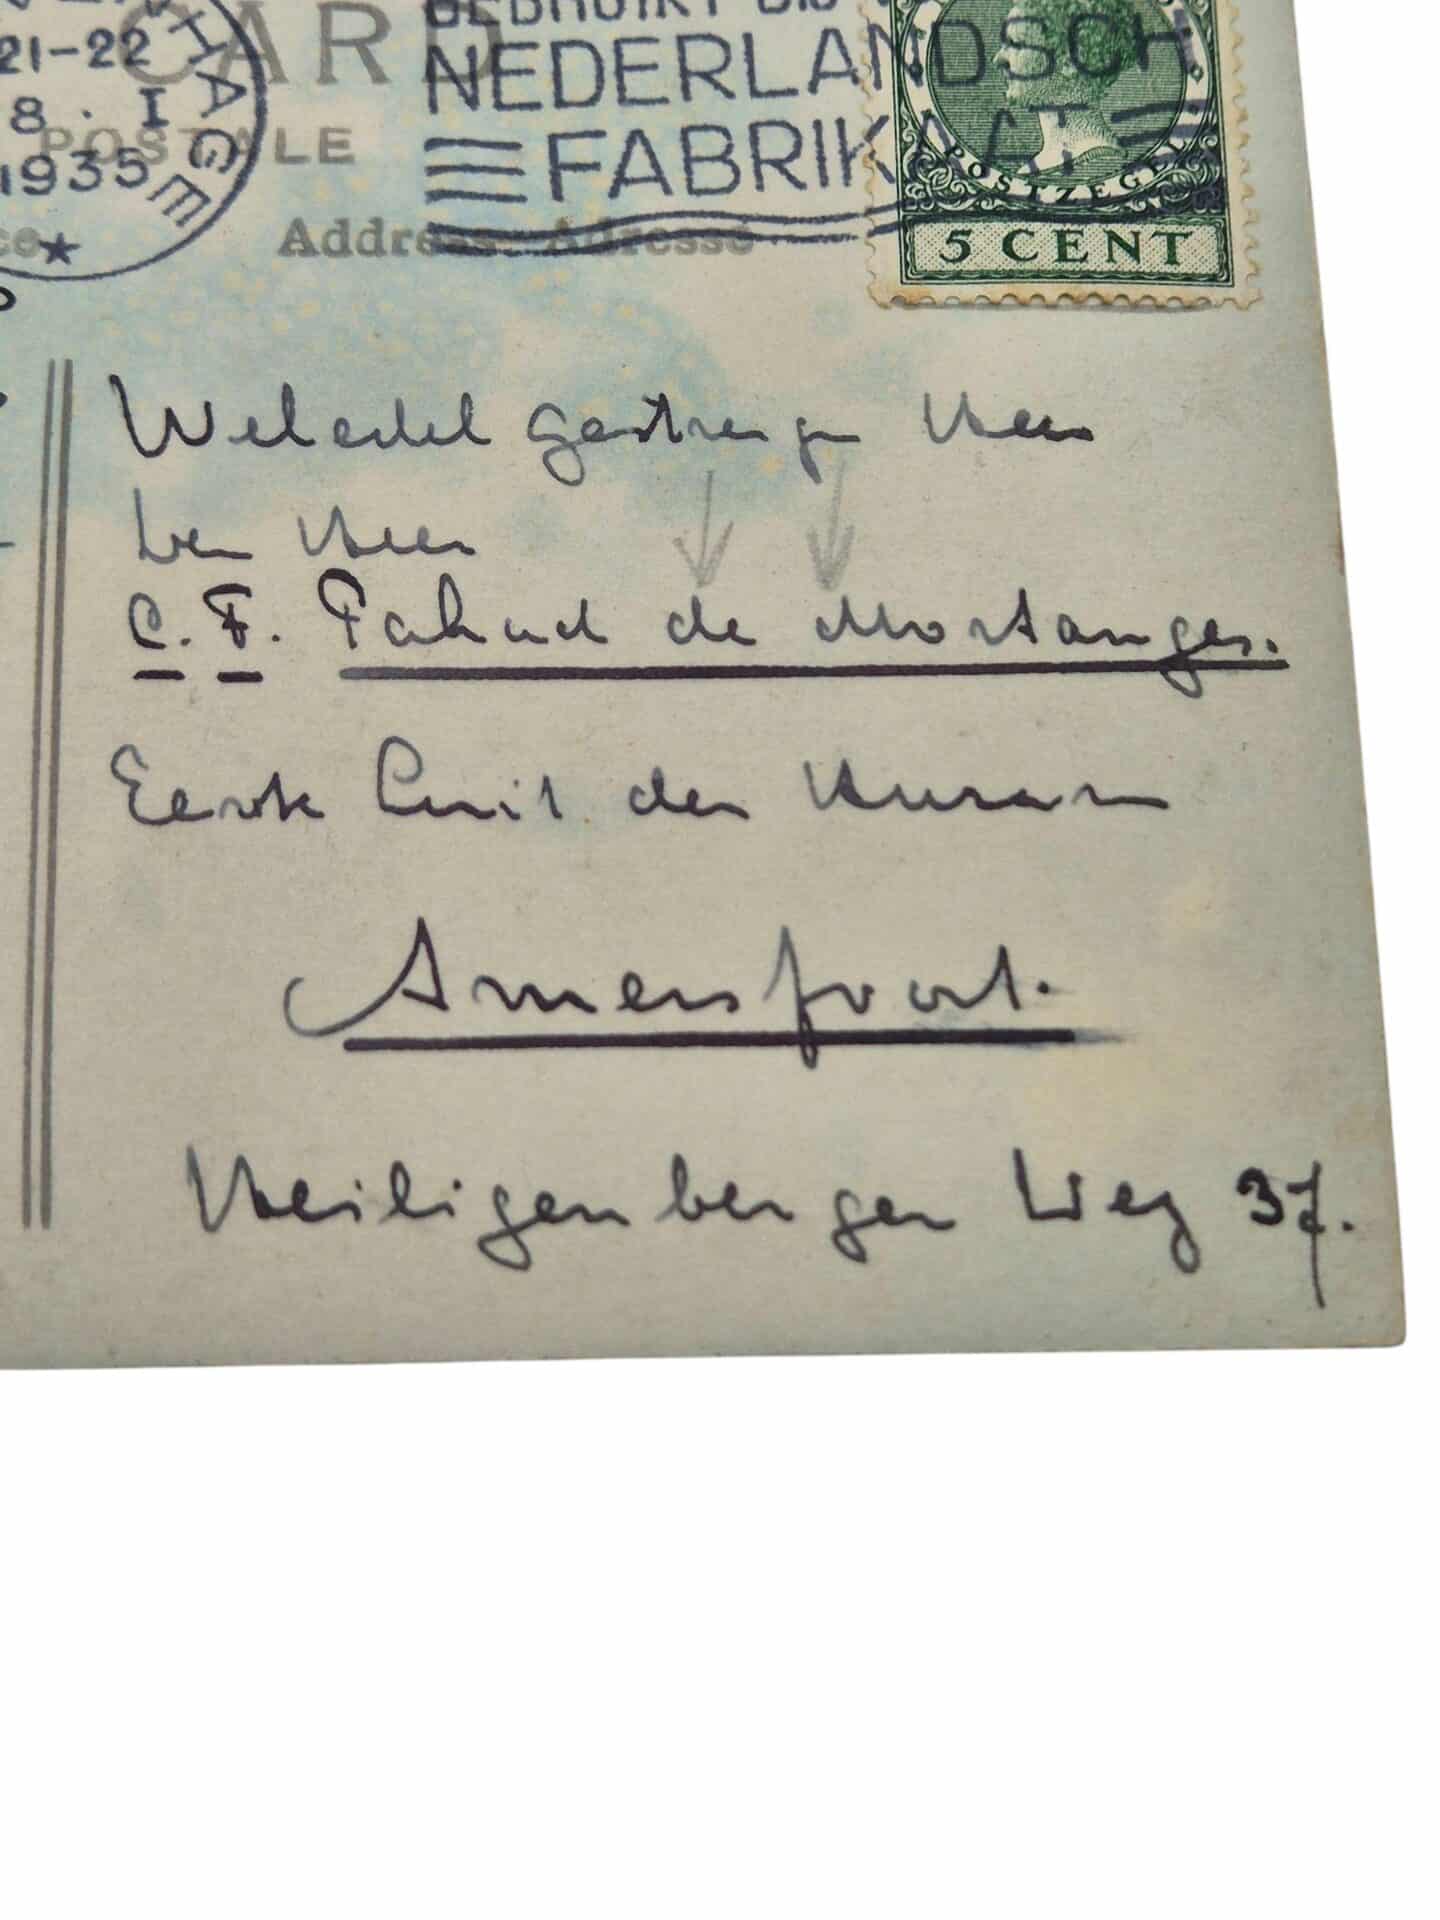 CARD
'S-GRAVENHAGE
21-22
8 . I
1935
POSTALE
NEDERLANDSCH
FABRIKAAT
POSTZEGEL
5 CENT
Address - Adresse
Weledel gestrenge Heer
den Heer
C. F. Pahud de Mortanges.
Eerste Luit der Huzaren
Amersfoort.
Heiligenberger Weg 37.